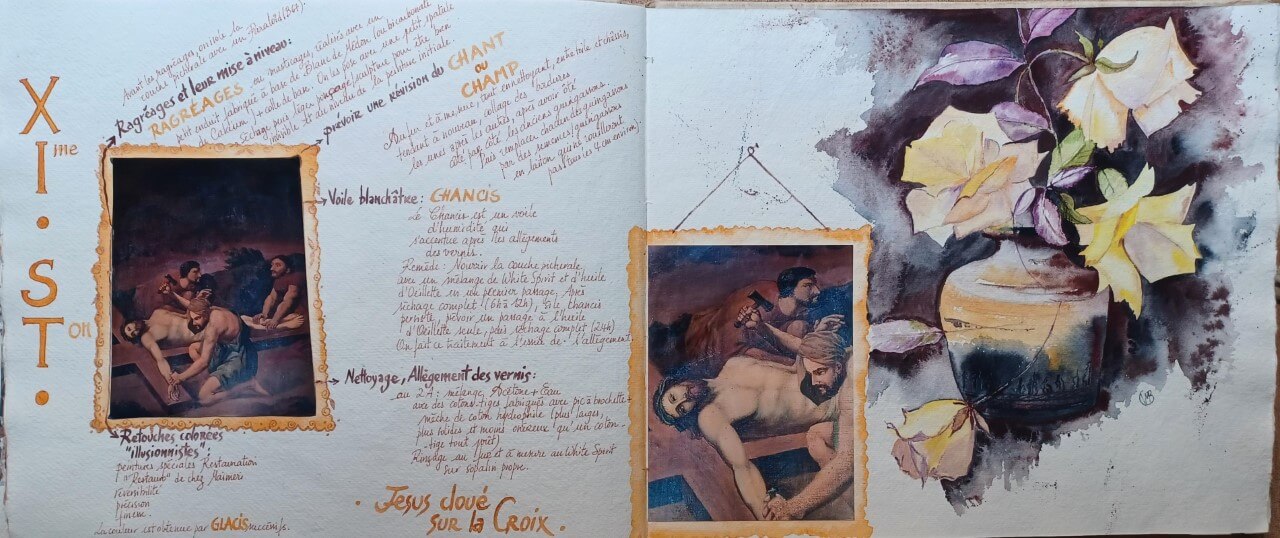 XIme
ST.on
Avant les ragréages, enrols la
couche picturale avec un
Ragréages et leur mise à niveau:
RAGRÉAGES ou masticages, réalisés avec un
petit enduit fabriqué à base de Blanc de Médon (ou bicarbonate
de Calcium) + colle de peau. On les pose avec une petit spatule
Séchage puis léger ponçage/sculpté pour être bien
invisible et au niveau de la peinture initiale
prévoir une révision du CHANT
OU
CHAMP
Au fur et à mesure, tout en nettoyant, entre toile et châssis,
tendue à nouveau, collage des bordures
les unes après les autres, après avoir été
ôté par côté les anciens guingassons.
Puis remplacer chacun des guingassons
par des semences/guingassons
en laiton, qui ne rouilleront
pas (tous les 4 cm environ).
Voile blanchâtre: CHANCIS
Le Chancis est un voile
d'humidité qui
s'accentue après les allègements
des vernis.
Remède: Nourrir la couche picturale
avec un mélange de White Spirit et d'huile
d'Oeillette en un premier passage. Après
séchage correct (6h à 12h), si le chancis
persiste, prévoir un passage à l'huile
d'Oeillette seule, puis séchage complet (24h)
On fait ce traitement à l'issue de l'allègement.
Nettoyage, Allègement des vernis:
au 2A: mélange Acétone + Eau
avec des cotons tiges fabriqués avec pic à brochette
mèche de coton hydrophile (plus larges,
plus solides et moins onéreux qu'un coton-
tige tout prêt)
Rinçage au fur et à mesure au White Spirit
sur sopalin propre.
Retouches colorées
"illusionnistes":
peintures spéciales Restauration
"Restauro" de chez Maimeri
réversibilité
précision
finesse.
La couleur est obtenue par GLACIS successifs.
Jesus cloué
sur la Croix.